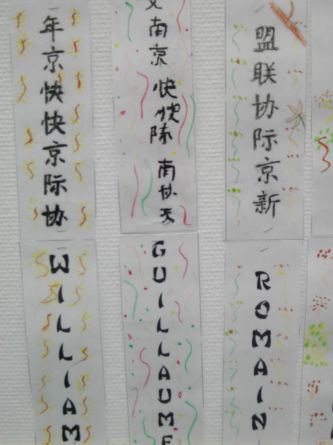 年京快快京际协
南京快快际南协天
盟联协际京新
WILLIAM
GUILLAUME
ROMAIN